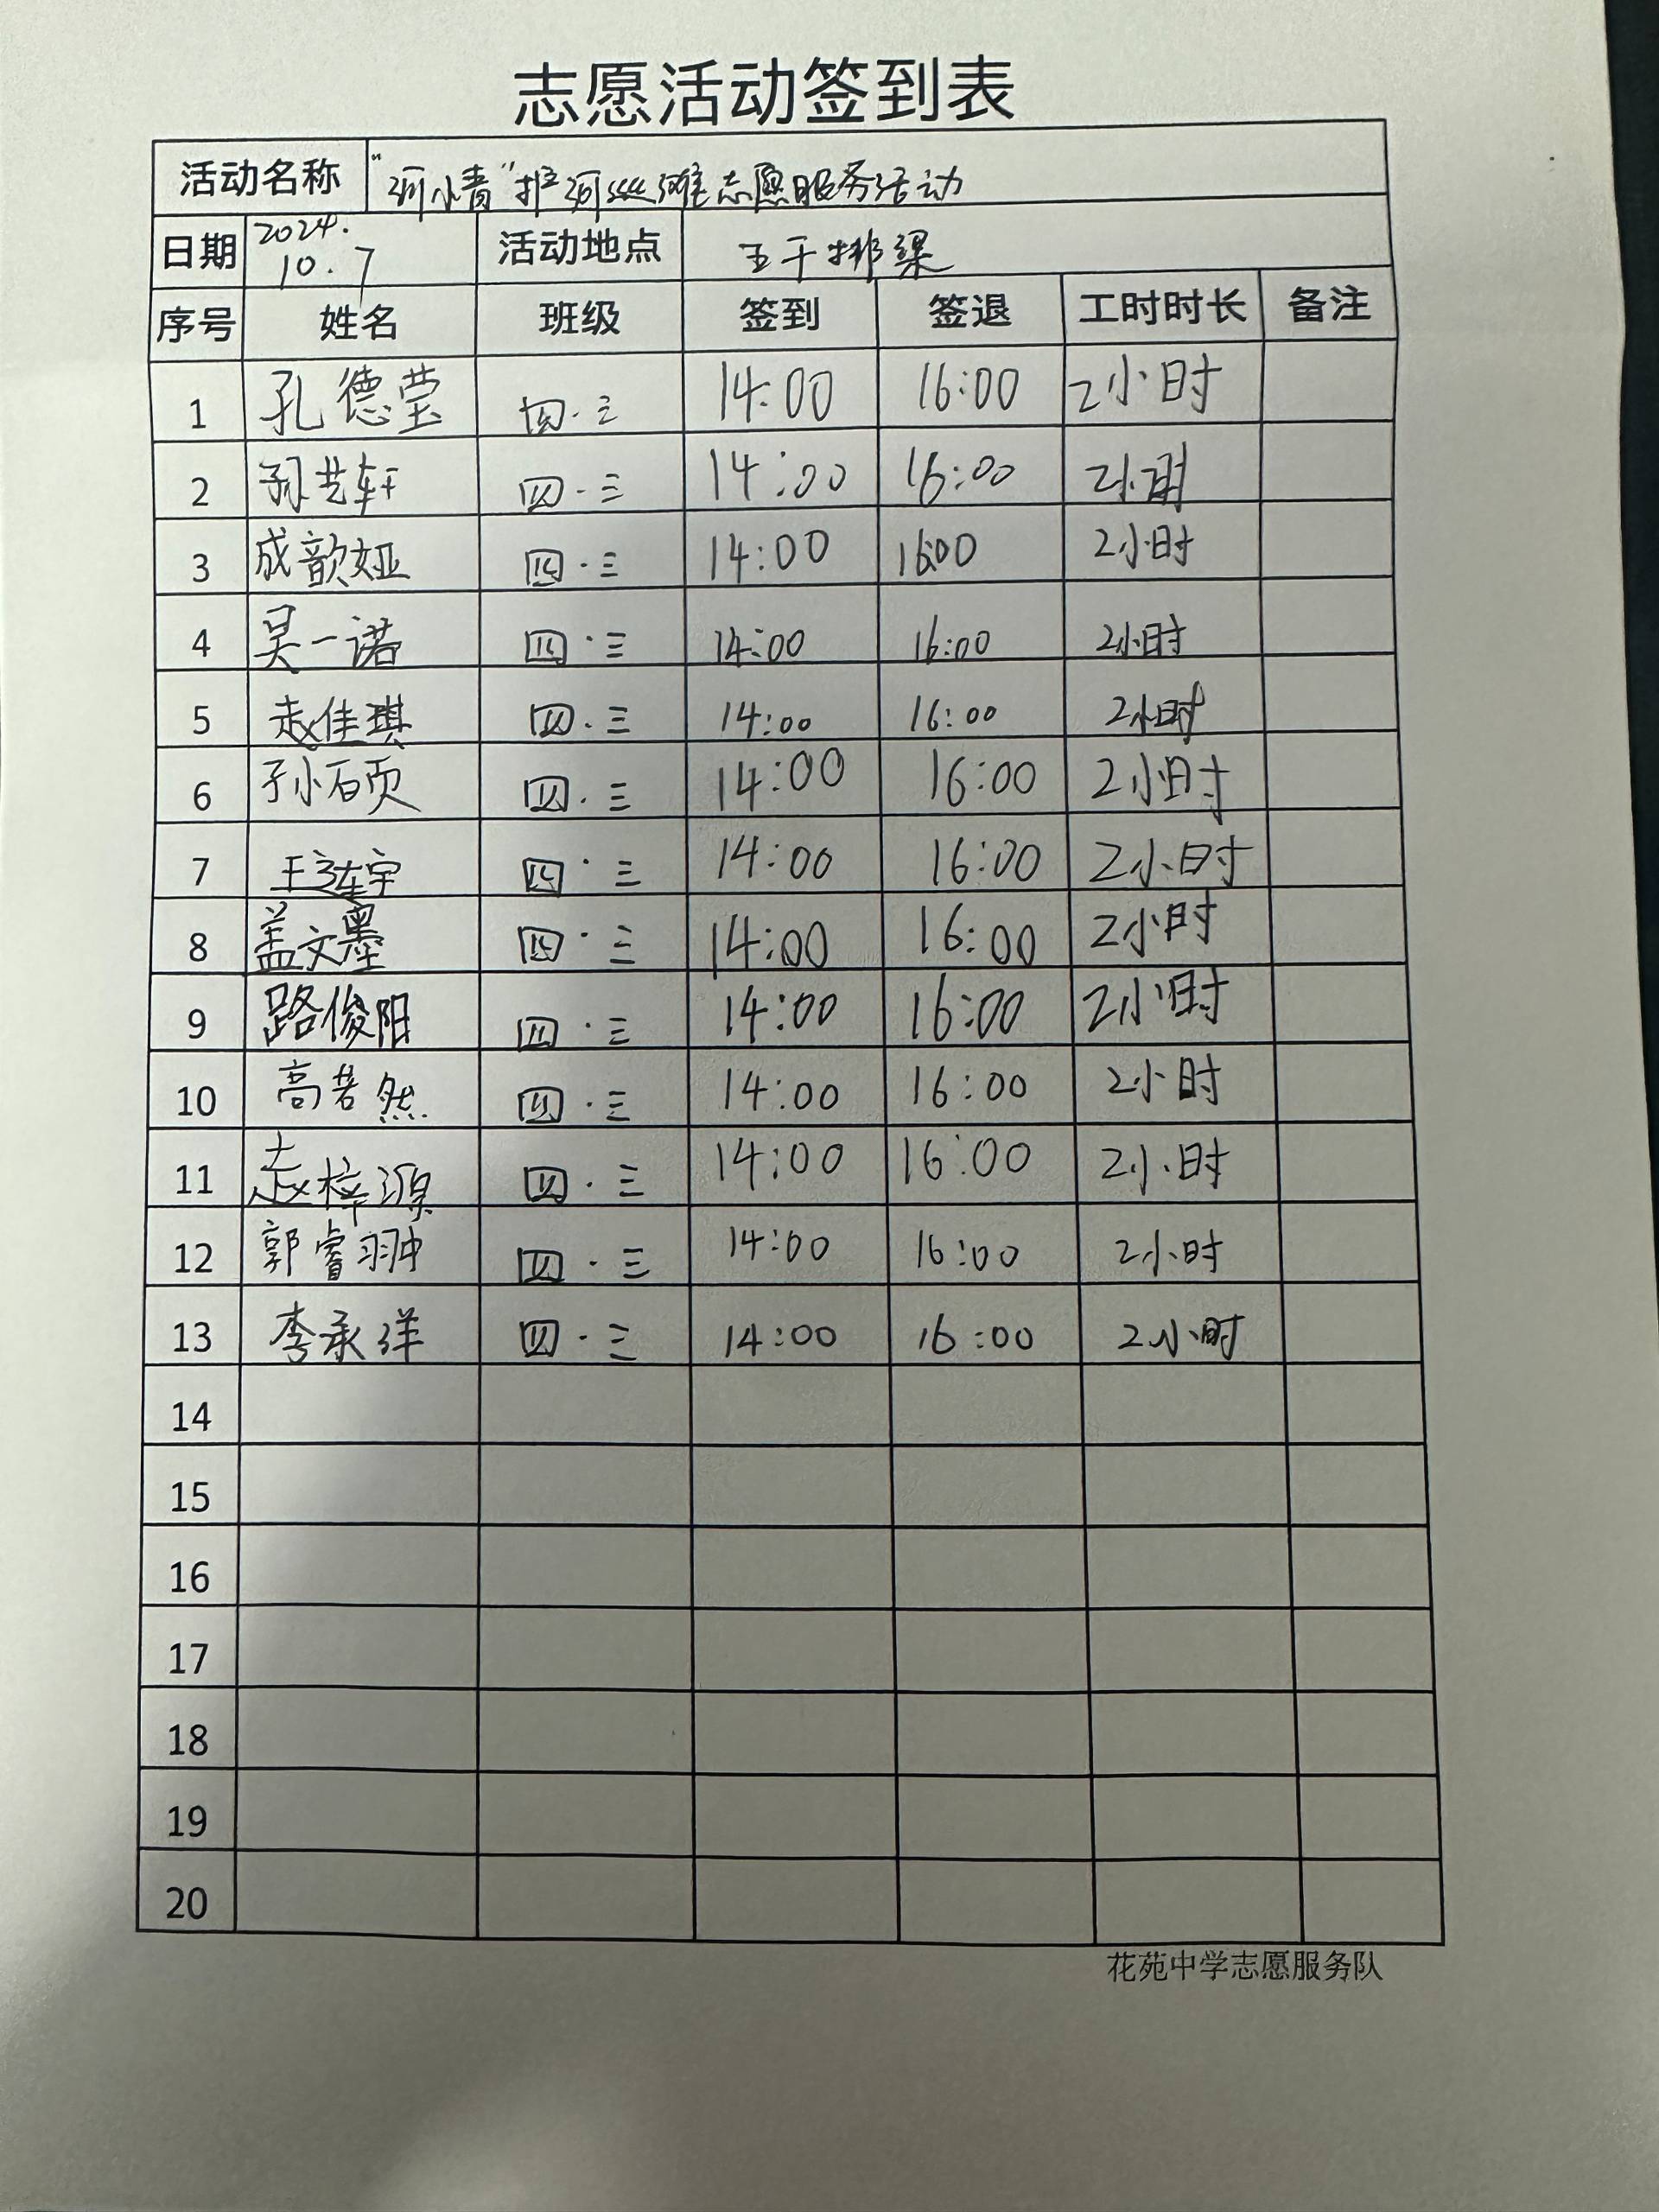 志愿活动签到表
活动名称 “河小青”护河巡滩志愿服务活动
日期 2024.10.7 活动地点 五干排渠
序号 姓名 班级 签到 签退 工时时长 备注
1 孔德莹 四·三 14:00 16:00 2小时
2 孙艺轩 四·三 14:00 16:00 2小时
3 成歆娅 四·三 14:00 16:00 2小时
4 吴一诺 四·三 14:00 16:00 2小时
5 赵佳琪 四·三 14:00 16:00 2小时
6 孙小硕 四·三 14:00 16:00 2小时
7 王连宇 四·三 14:00 16:00 2小时
8 盖文墨 四·三 14:00 16:00 2小时
9 路俊阳 四·三 14:00 16:00 2小时
10 高若然 四·三 14:00 16:00 2小时
11 赵梓源 四·三 14:00 16:00 2小时
12 郭睿翀 四·三 14:00 16:00 2小时
13 李承洋 四·三 14:00 16:00 2小时
14
15
16
17
18
19
20
花苑中学志愿服务队